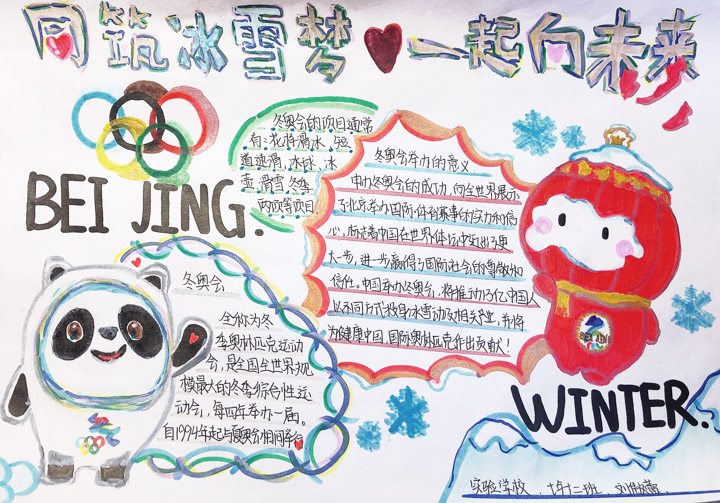 同筑冰雪梦 一起向未来
BEI JING.
冬奥会的项目通常
有:花样滑冰、短
道速滑,冰球、冰
壶,滑雪,冬季
两项等项目.
冬奥会举办的意义
申办冬奥会的成功,向全世界展示
了北京举办国际体育赛事的实力和信
心,标志着中国在世界体坛中迈出了更
大一步,进一步赢得了国际社会的尊敬和
信任。中国举办冬奥会,将推动13亿中国人
以不同方式投身冰雪运动及相关产业,并将
为健康中国、国际奥林匹克作出贡献!
冬奥会
全称为冬
季奥林匹克运动
会,是全国全世界规
模最大的冬季综合性运
动会,每四年举办一届。
自1994年起与夏奥会相间举行
BEIJING
WINTER.
实验学校 七年十二班